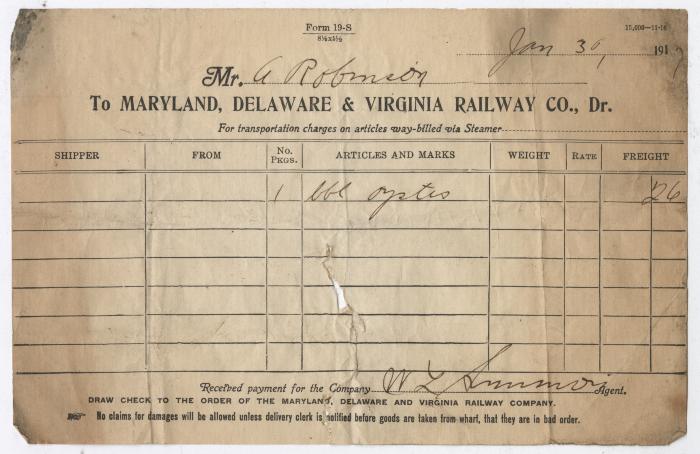 Form 19-S
8½x5½
15,000—11-16
Jan 30, 1917
Mr. A Robinson
To MARYLAND, DELAWARE & VIRGINIA RAILWAY CO., Dr.
For transportation charges on articles way-billed via Steamer
SHIPPER FROM No. PKGS. ARTICLES AND MARKS WEIGHT RATE FREIGHT
1 bbl oysters 26
Received payment for the Company W L Agent.
DRAW CHECK TO THE ORDER OF THE MARYLAND, DELAWARE AND VIRGINIA RAILWAY COMPANY.
No claims for damages will be allowed unless delivery clerk is notified before goods are taken from wharf, that they are in bad order.